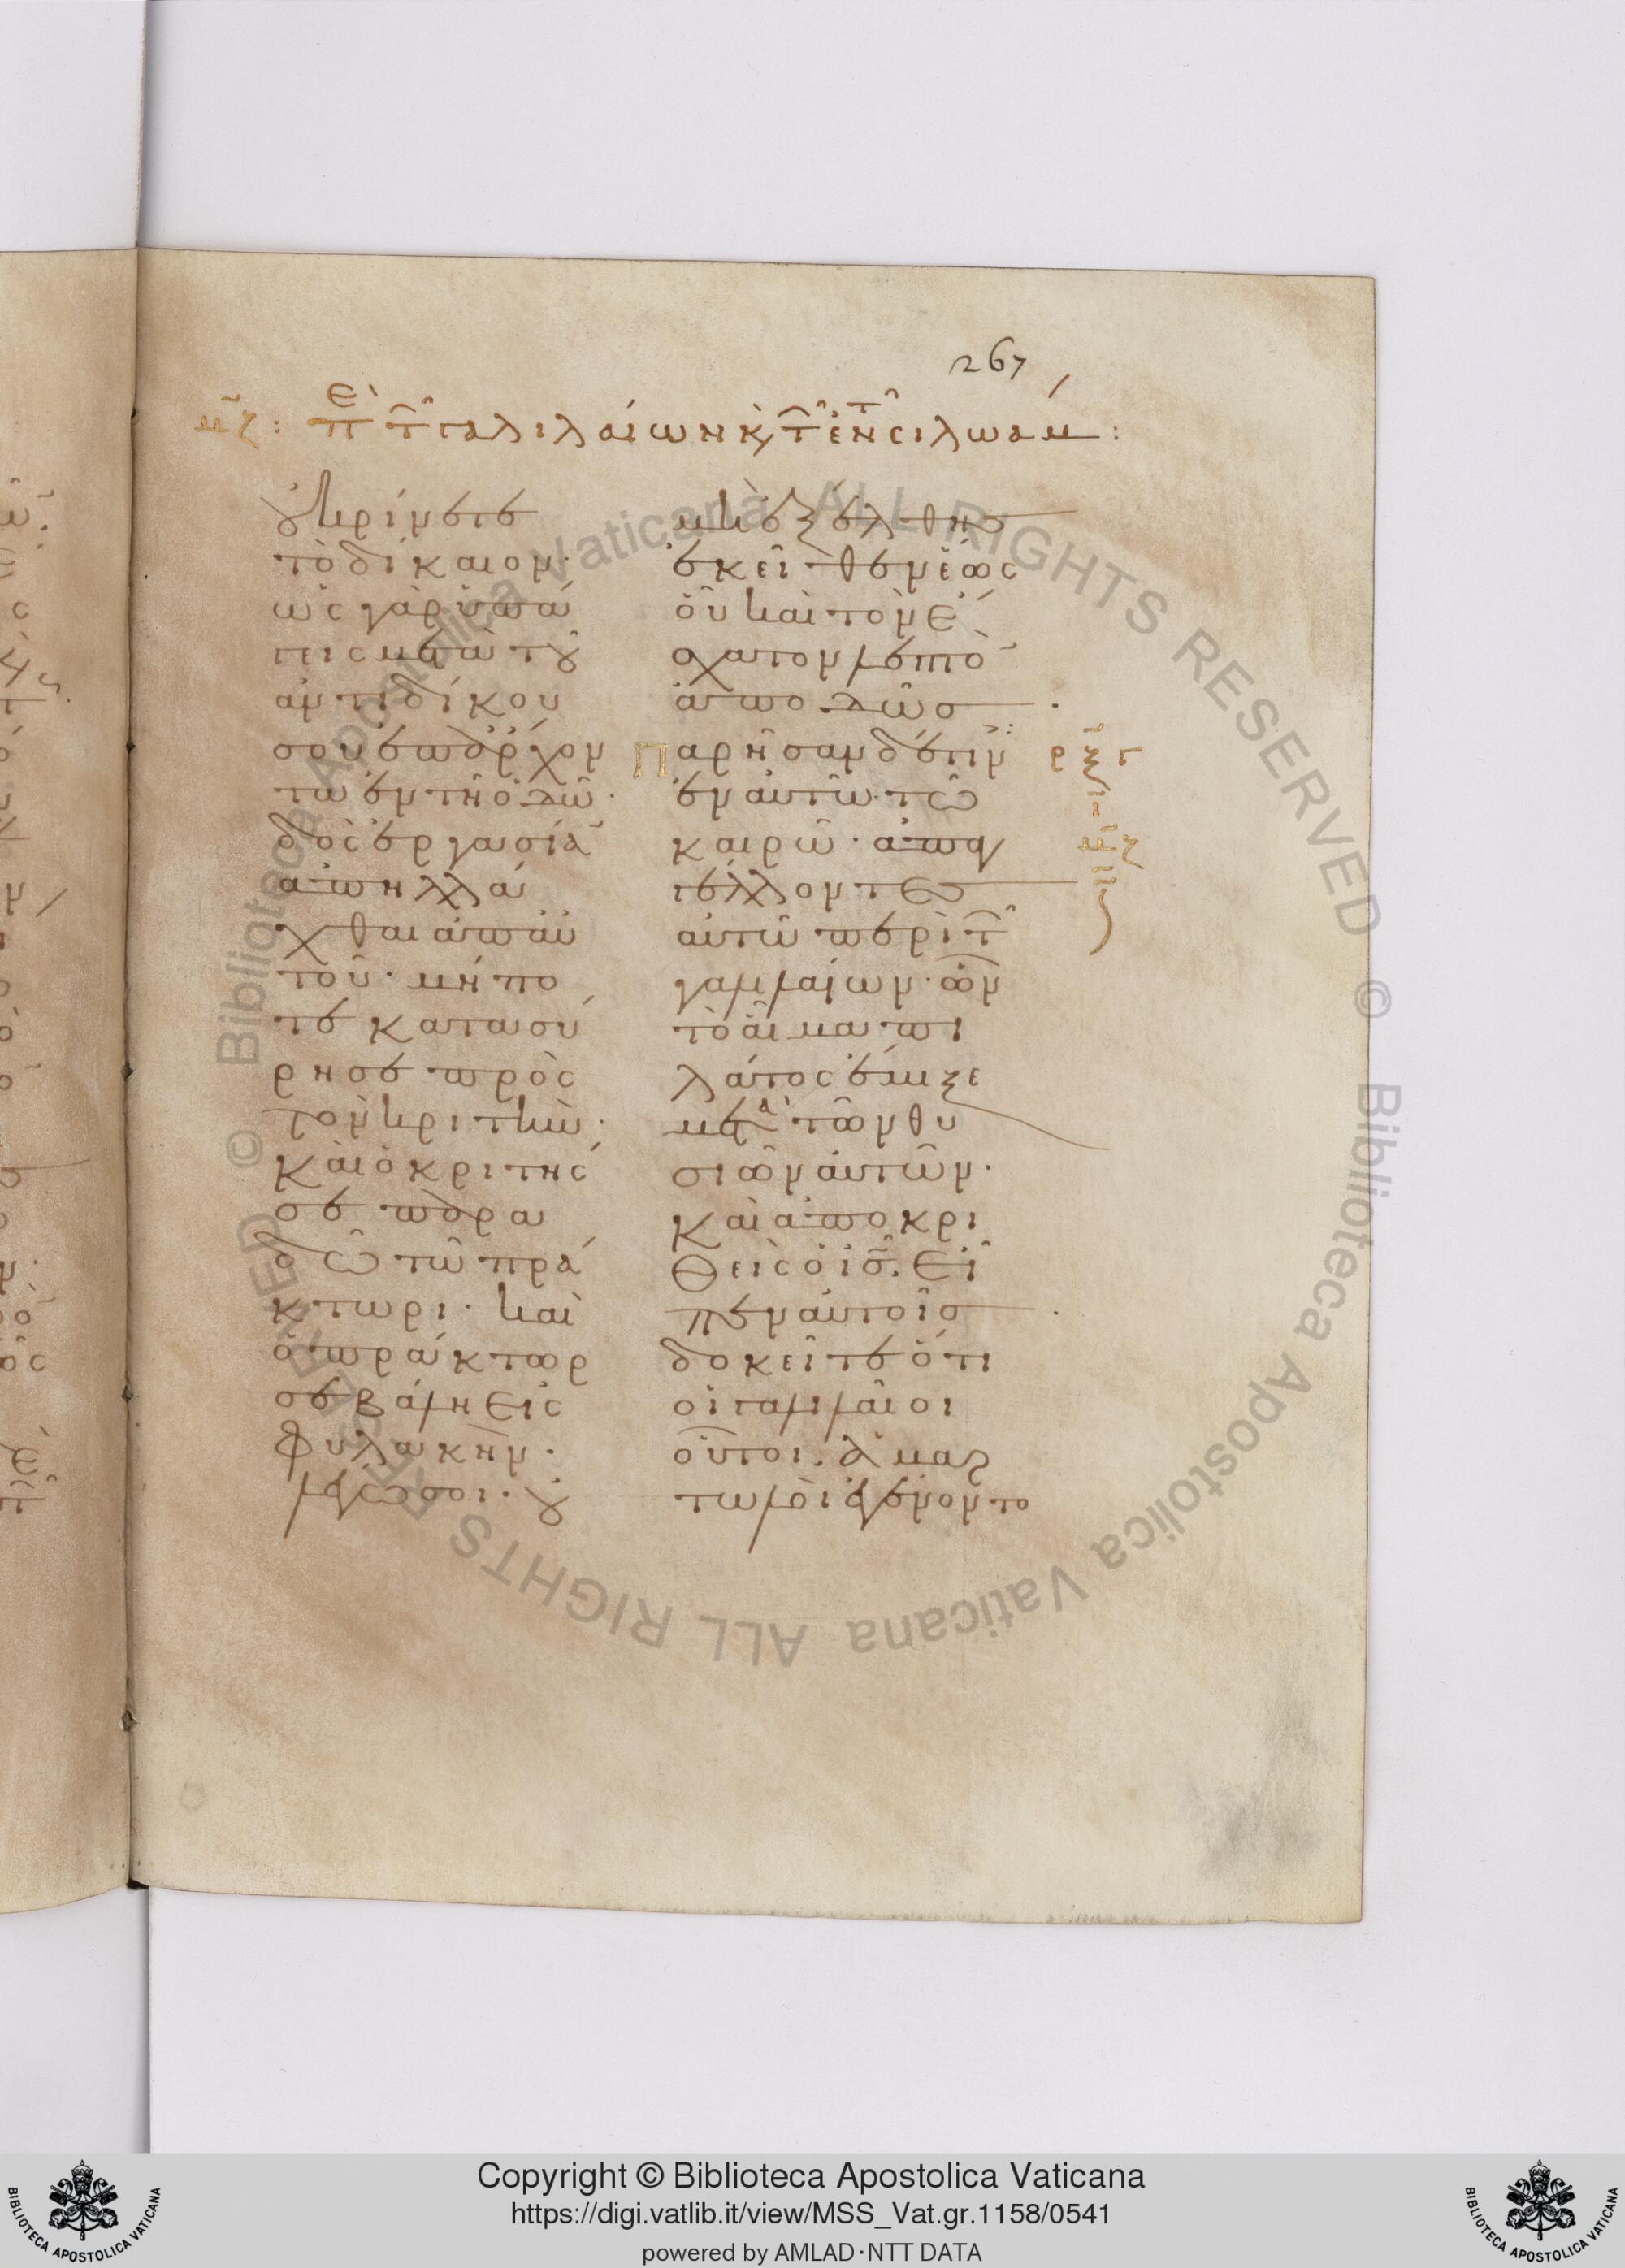 267
μζ: πε τ γαλιλαίων κ τ ἐν τ σιλωάμ:
οὐ κρίνετε
τὸ δίκαιον·
ὡς γὰρ ὑπά
γεις μετὰ τοῦ
ἀντιδίκου
σου ἐπ' ἄρχον
τα ἐν τῆ ὁδῶ·
δὸς ἐργασίαν
ἀπηλλά
χθαι ἀπ' αὐ
τοῦ· μήπο
τε κατασύ
ρη σε πρὸς
τὸν κριτὴν·
καὶ ὁ κριτής
σε παρα
δῶ τῶ πρά
κτωρι· καὶ
ὁ πράκτωρ
σε βάλη εἰς
φυλακὴν·
λέγω σοι· οὐ
μὴ ἐξέλθης
ἐκεῖθεν ἕως
οὗ καὶ τὸν ἔ
σχατον λεπτὸν
ἀποδῶς·
Παρῆσαν δέ τινὲς
ἐν αὐτῶ τῶ
καιρῶ· ἀπαγ
γέλλοντες
αὐτῶ περὶ τῶν
γαλιλαίων· ὧν
τὸ αἷμα πι
λάτος ἔμιξε
μετὰ τῶν θυ
σιῶν αὐτῶν·
καὶ ἀποκρι
θεὶς ὁ ἰς. Εἶ
πεν αὐτοῖς·
δοκεῖτε ὅτι
οἱ γαλιλαῖοι
οὗτοι. ἁμαρ
τωλοὶ ἐγένοντο
ρξγ
ι
μζ
Copyright © Biblioteca Apostolica Vaticana
https://digi.vatlib.it/view/MSS_Vat.gr.1158/0541
powered by AMLAD·NTT DATA
BIBLIOTECA APOSTOLICA VATICANA
BIBLIOTECA APOSTOLICA VATICANA
© Biblioteca Apostolica Vaticana ALL RIGHTS RESERVED © Biblioteca Apostolica Vaticana ALL RIGHTS RESERVED